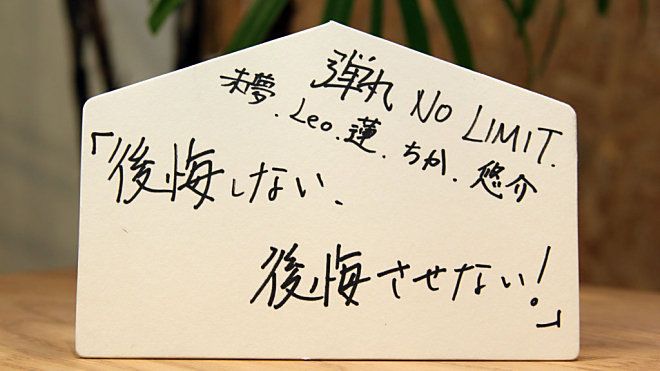 弾丸 NO LIMIT.
未夢.Leo.蓮.ちか.悠介
「後悔しない、
後悔させない!」